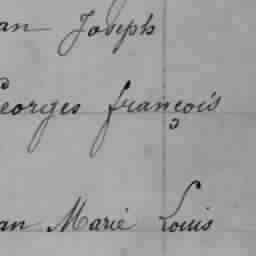 an Joseph
eorges françois
an Marie Louis